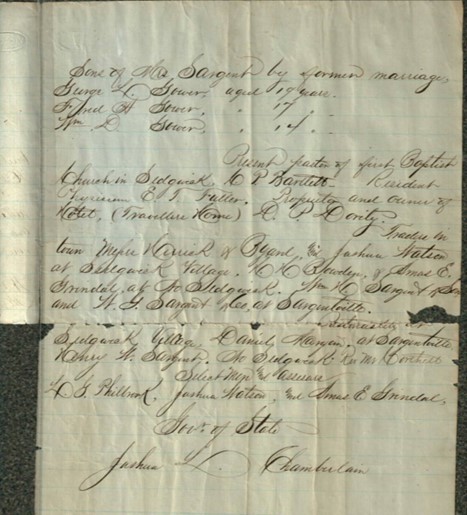 Sons of Mrs Sargent by former marriage,
George L. Gower, aged 19 years.
Fred A Gower, " 17 " -
Wm. L Gower, " 14 " -
Present pastor of first Baptist
Church in Sedgwick, C P Bartlett - Resident
E. Fuller. Proprietor and owner of
Hotel, (Travellers Home) P. Dority,
Trades in
town Herrick & Byard, & Joshua Watson
at Sedgwick Village. H H & Amas E.
Grindal, at No Sedgwick. Wm H Sargent & Son
and W. G. Sargent & Co, at Sargentville.
at
Sedgwick Village, Daniel at Sargentville
Henry W. Sargent. No Sedgwick Mr
Select Men & Assessors
G Philbrook, Joshua Watson, and Amas E Grindal,
Gov. of State
Joshua L. Chamberlain